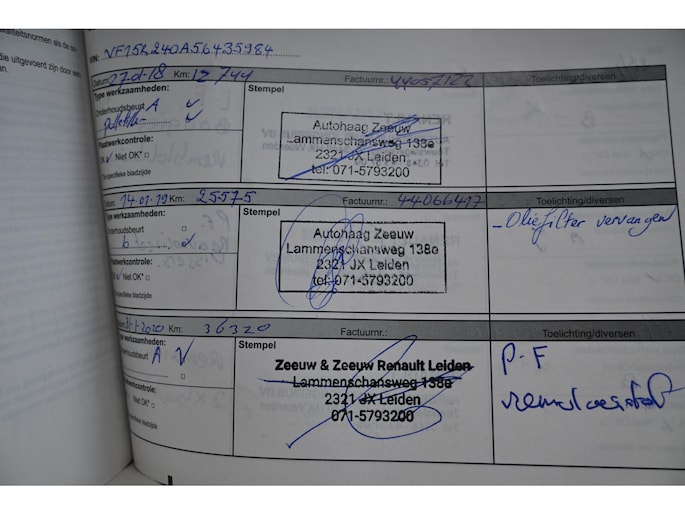 aliteitsnormen als de on-
die uitgevoerd zijn door een
an.
VIN: VF15R240A56435984
Datum: 27-01-18 Km: 12744 Factuurnr.: 44057123 Toelichting/diversen
Type werkzaamheden:
Onderhoudsbeurt A ✓
Stempel
Autohaag Zeeuw
Lammenschansweg 138e
2321 JX Leiden
tel: 071-5793200
Plaatwerkcontrole:
Niet OK*
specifieke bladzijde
Datum: 14.01.19 Km: 25575 Factuurnr.: 44066417 Toelichting/diversen
Type werkzaamheden:
Onderhoudsbeurt
b ✓
Stempel
Autohaag Zeeuw
Lammenschansweg 138e
2321 JX Leiden
tel: 071-5793200
- Oliefilter vervangen
Plaatwerkcontrole:
Niet OK*
specifieke bladzijde
2020 Km: 36320 Factuurnr.: Toelichting/diversen
Type werkzaamheden:
Onderhoudsbeurt A V
Stempel
Zeeuw & Zeeuw Renault Leiden
Lammenschansweg 138e
2321 JX Leiden
071-5793200
P-F
remvloeistof
Plaatwerkcontrole:
Niet OK*
specifieke bladzijde